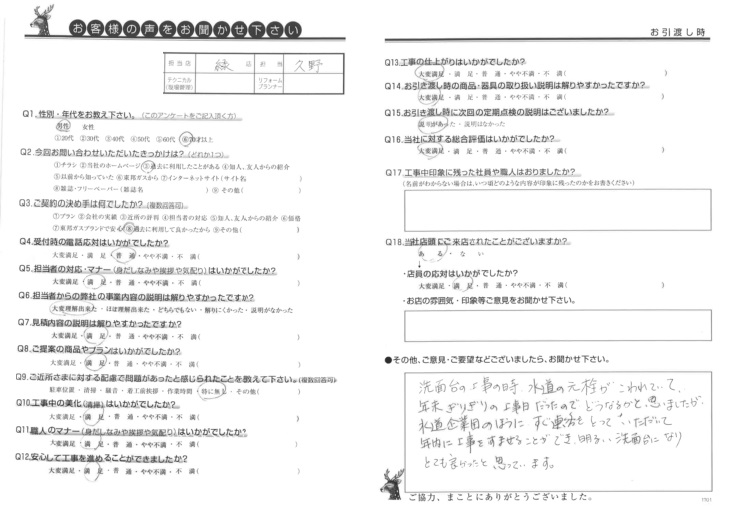 お客様の声をお聞かせ下さい
担当店 綾 店 担当 久野
テクニカル(現場管理) リフォームプランナー
Q1.性別・年代をお教え下さい。(このアンケートをご記入頂く方)
男性 女性
①20代 ②30代 ③40代 ④50代 ⑤60代 ⑥70才以上
Q2.今回お問い合わせいただいたきっかけは?(どれか1つ)
①チラシ ②当社のホームページ ③過去に利用したことがある ④知人、友人からの紹介
⑤以前から知っていた ⑥東邦ガスから ⑦インターネットサイト(サイト名 )
⑧雑誌・フリーペーパー(雑誌名 ) ⑨その他( )
Q3.ご契約の決め手は何でしたか?(複数回答可)
①プラン ②会社の実績 ③近所の評判 ④担当者の対応 ⑤知人、友人からの紹介 ⑥価格
⑦東邦ガスブランドで安心 ⑧過去に利用して良かったから ⑨その他( )
Q4.受付時の電話応対はいかがでしたか?
大変満足・満 足・普 通・やや不満・不 満( )
Q5.担当者の対応・マナー(身だしなみや挨拶や気配り)はいかがでしたか?
大変満足・満 足・普 通・やや不満・不 満( )
Q6.担当者からの弊社の事業内容の説明は解りやすかったですか?
大変理解出来た・ほぼ理解出来た・どちらでもない・解りにくかった・説明がなかった
Q7.見積内容の説明は解りやすかったですか?
大変満足・満 足・普 通・やや不満・不 満( )
Q8.ご提案の商品やプランはいかがでしたか?
大変満足・満 足・普 通・やや不満・不 満( )
Q9.ご近所さまに対する配慮で問題があったと感じられたことを教えて下さい。(複数回答可)
駐車位置・清掃・騒音・着工前挨拶・作業時間・特に無し・その他( )
Q10.工事中の美化(清掃)はいかがでしたか?
大変満足・満 足・普 通・やや不満・不 満( )
Q11.職人のマナー(身だしなみや挨拶や気配り)はいかがでしたか?
大変満足・満 足・普 通・やや不満・不 満( )
Q12.安心して工事を進めることができましたか?
大変満足・満 足・普 通・やや不満・不 満( )
お引渡し時
Q13.工事の仕上がりはいかがでしたか?
大変満足・満 足・普 通・やや不満・不 満( )
Q14.お引き渡し時の商品・器具の取り扱い説明は解りやすかったですか?
大変満足・満 足・普 通・やや不満・不 満( )
Q15.お引き渡し時に次回の定期点検の説明はございましたか?
説明があった・説明はなかった
Q16.当社に対する総合評価はいかがでしたか?
大変満足・満 足・普 通・やや不満・不 満( )
Q17.工事中印象に残った社員や職人はおりましたか?
(名前がわからない場合は、いつ頃どのような内容が印象に残ったのかをお書きください)
Q18.当社店頭にご来店されたことがございますか?
あ る・な い
・店員の応対はいかがでしたか?
大変満足・満 足・普 通・やや不満・不 満( )
・お店の雰囲気・印象等ご意見をお聞かせ下さい。
●その他、ご意見・ご要望などございましたら、お聞かせ下さい。
洗面台の工事の時、水道の元栓がこわれていて、
年末ぎりぎりの工事日だったのでどうなるかと思いましたが、
水道企業団のほうにすぐ連絡をとっていただいて
年内に工事をすませることができ、明るい洗面台になり
とても良かったと思っています。
ご協力、まことにありがとうございました。